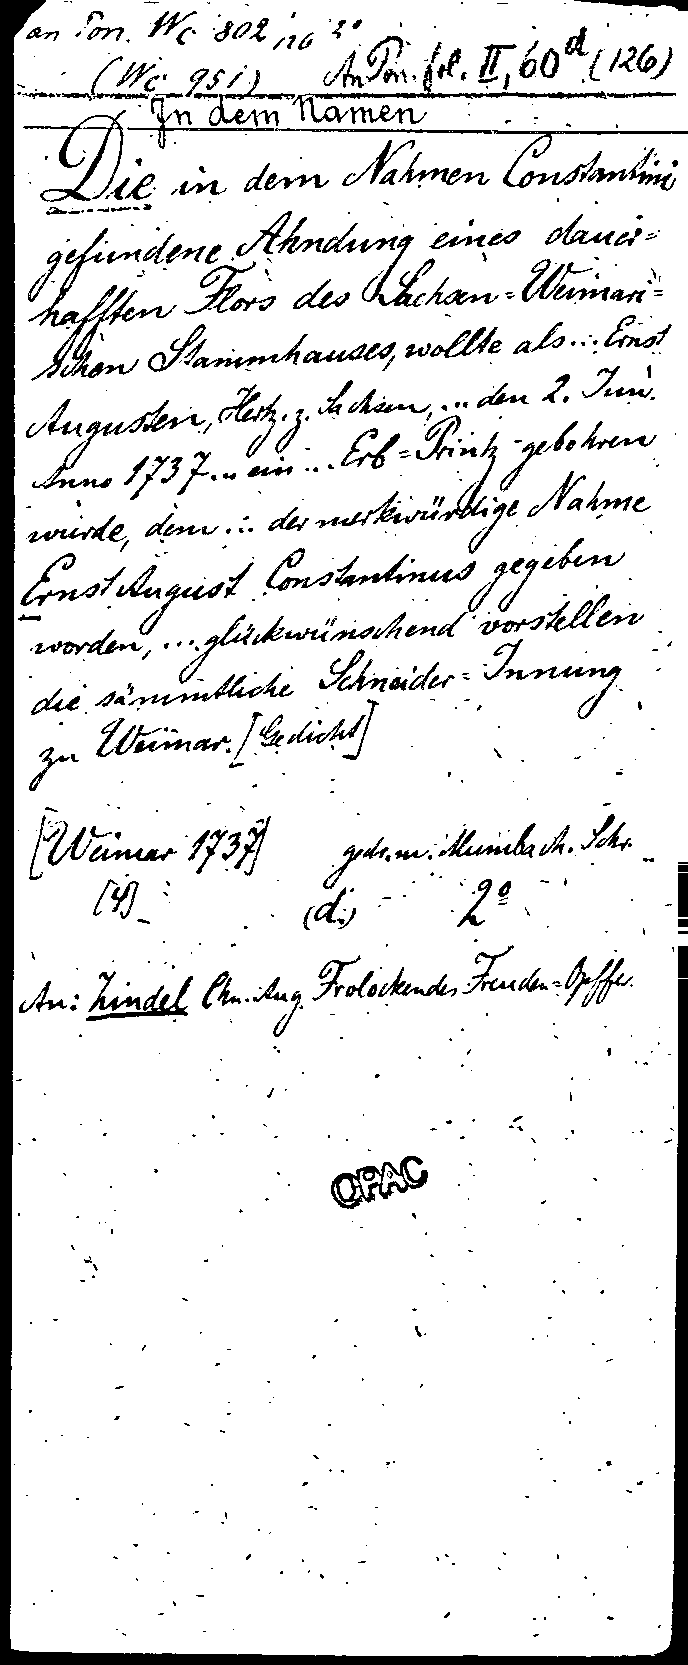 an Pon. Wc 802, 126 2°
(Wc 951) An Pon. fol. II, 60d (126)
In dem Namen
Die in dem Nahmen Constantini
gefundene Ahndung eines dauer=
hafften Flors des Sachsen=Weimari=
schen Stammhauses, wollte als ... Ernst
Augusten, Hertz. z. Sachsen, ... den 2. Jun.
Anno 1737 ... ein ... Erb=Printz gebohren
wurde, dem ... der merkwürdige Nahme
Ernst August Constantinus gegeben
worden, ... glückwünschend vorstellen
die sämmtliche Schneider=Innung
zu Weimar. [Gedicht]
[Weimar 1737] gedr. m. Mumbach. Schr.
(4) (d.) 2°
An: Zindel Chn. Aug. Frolockendes Freuden=Opffer.
OPAC